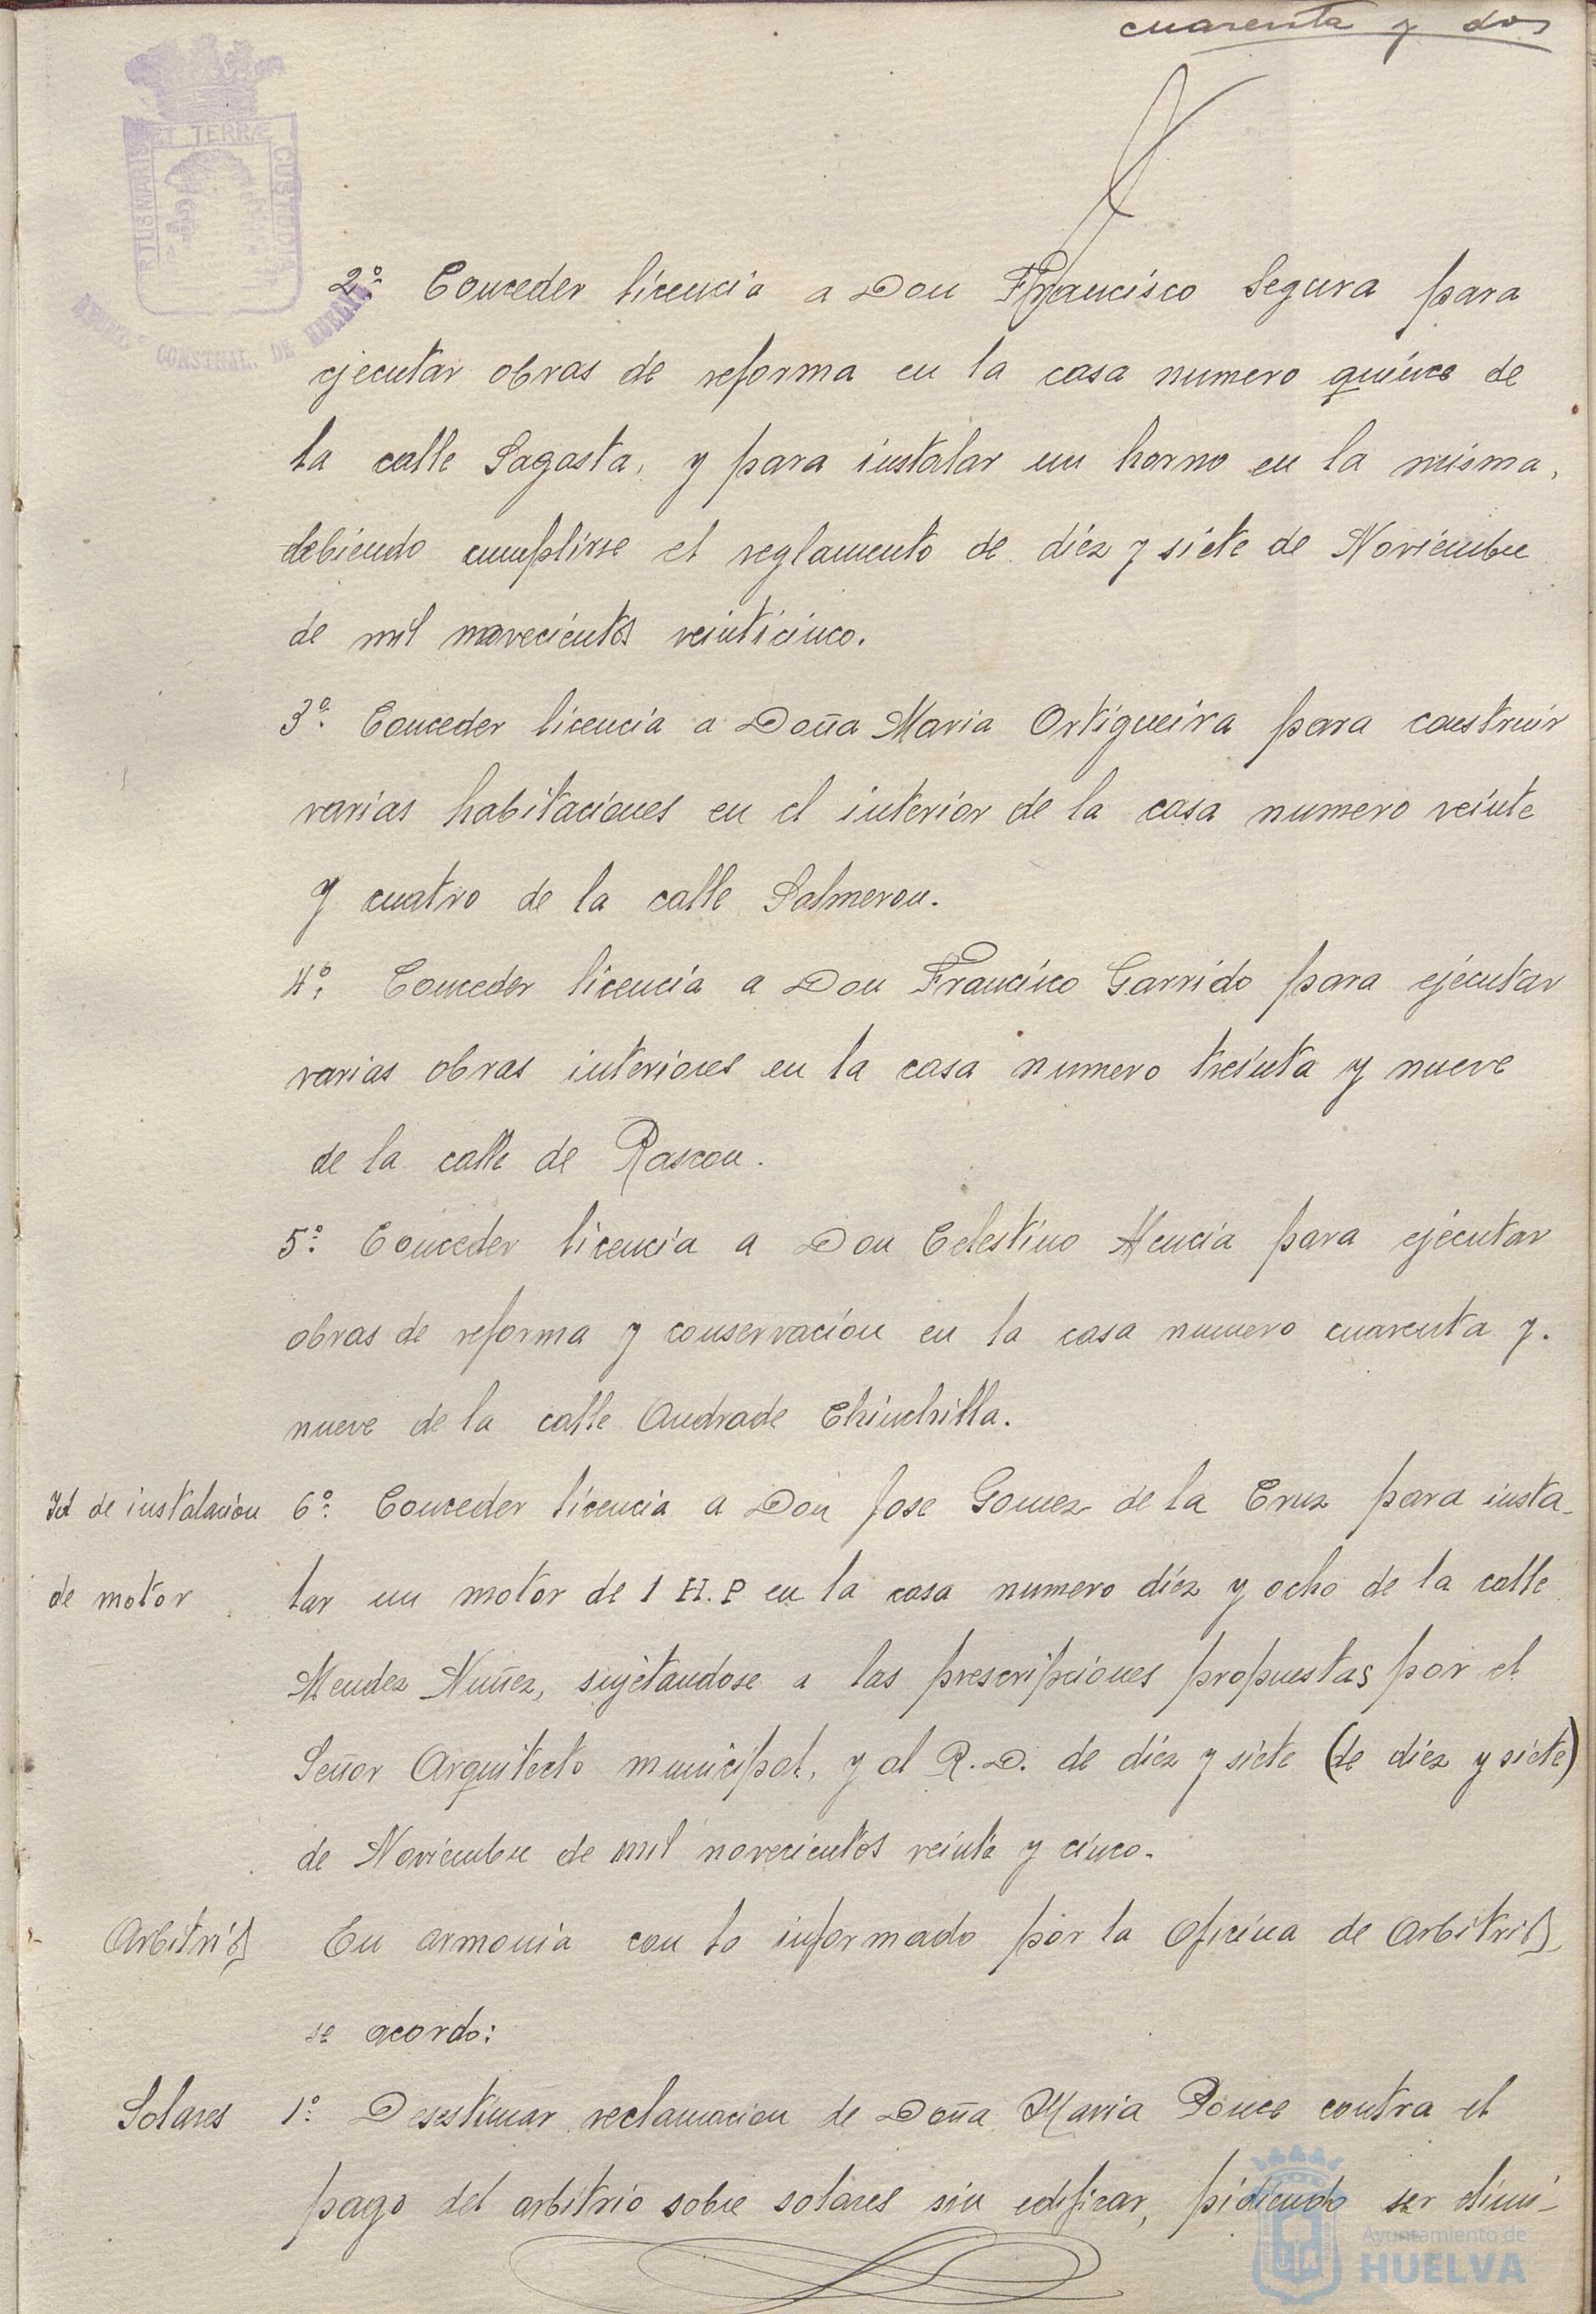 cuarenta y dos
PORTUS MARIS ET TERRÆ CUSTODIA
CONSTNAL. DE HUELVA
2º Conceder licencia a Don Francisco Segura para
ejecutar obras de reforma en la casa numero quince de
la calle Sagasta, y para instalar un horno en la misma,
debiendo cumplirse el reglamento de diez y siete de Noviembre
de mil novecientos veinticinco.
3º Conceder licencia a Doña Maria Ortigueira para construir
varias habitaciones en el interior de la casa numero veinte
y cuatro de la calle Salmeron.
4º Conceder licencia a Don Francisco Garrido para ejecutar
varias obras interiores en la casa numero treinta y nueve
de la calle de Rascon.
5º Conceder licencia a Don Celestino Mencia para ejecutar
obras de reforma y conservacion en la casa numero cuarenta y.
nueve de la calle Andrade Chinchilla.
Id de instalacion 6º Conceder licencia a Don Jose Gomez de la Cruz para insta-
de motor lar un motor de 1 H.P en la casa numero diez y ocho de la calle
Mendez Nuñez, sujetandose a las prescripciones propuestas por el
Señor Arquitecto municipal, y al R.D. de diez y siete (de diez y siete)
de Noviembre de mil novecientos veinte y cinco.
Arbitrios En armonia con lo informado por la Oficina de Arbitrios
se acordo:
Solares 1º Desestimar reclamacion de Doña Maria Ponce contra el
pago del arbitrio sobre solares sin edificar, pidiendo ser elimi-
Ayuntamiento de
HUELVA